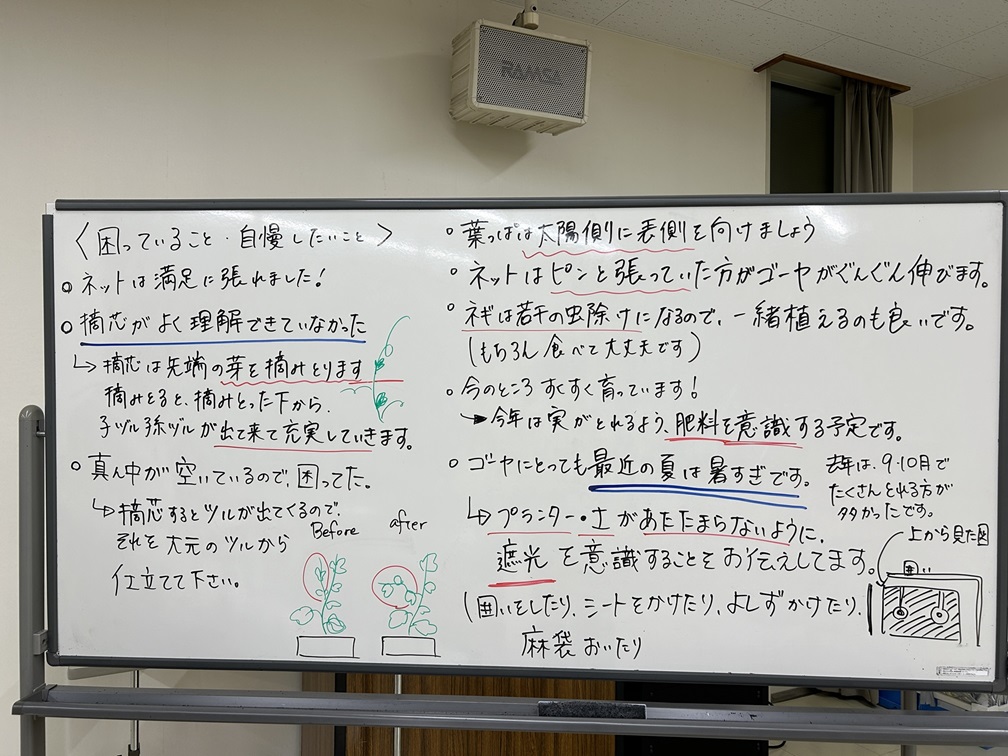 RAMSA
〈困っていること・自慢したいこと〉
○ネットは満足に張れました!
○摘芯がよく理解できていなかった
↳摘芯は先端の芽を摘みとります
摘みとると、摘みとった下から、
子ヅル孫ヅルが出て来て充実していきます。
○真ん中が空いているので、困ってた。
↳摘芯するとツルが出てくるので、
それを大元のツルから
仕立てて下さい。
Before
after
○葉っぱは太陽側に表側を向けましょう
○ネットはピンと張っていた方がゴーヤがぐんぐん伸びます。
○ネギは若干の虫除けになるので、一緒植えるのも良いです。
(もちろん食べて大丈夫です)
○今のところすくすく育っています!
→今年は実がとれるよう、肥料を意識する予定です。
○ゴーヤにとっても最近の夏は暑すぎです。
去年は、9・10月で
たくさんとれる方が
多かったです。
↳プランター・土があたたまらないように、
遮光を意識することをお伝えしてます。
(囲いをしたり、シートをかけたり、よしずかけたり、
麻袋おいたり
上から見た図
囲い